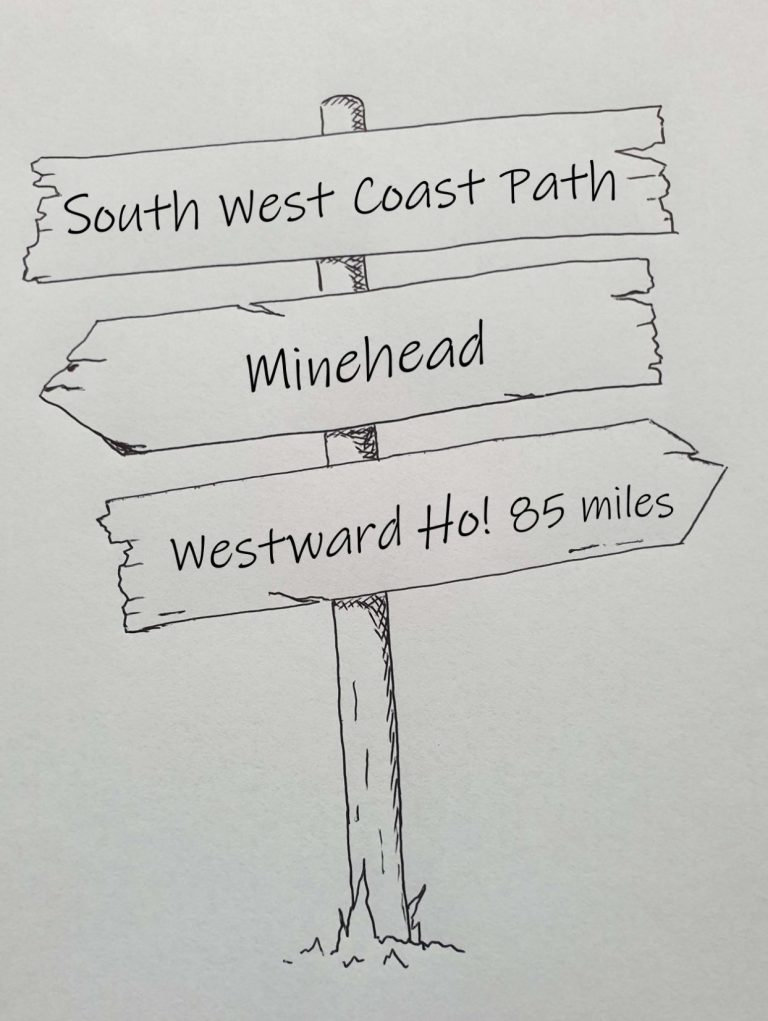 South West Coast Path
Minehead
Westward Ho! 85 miles